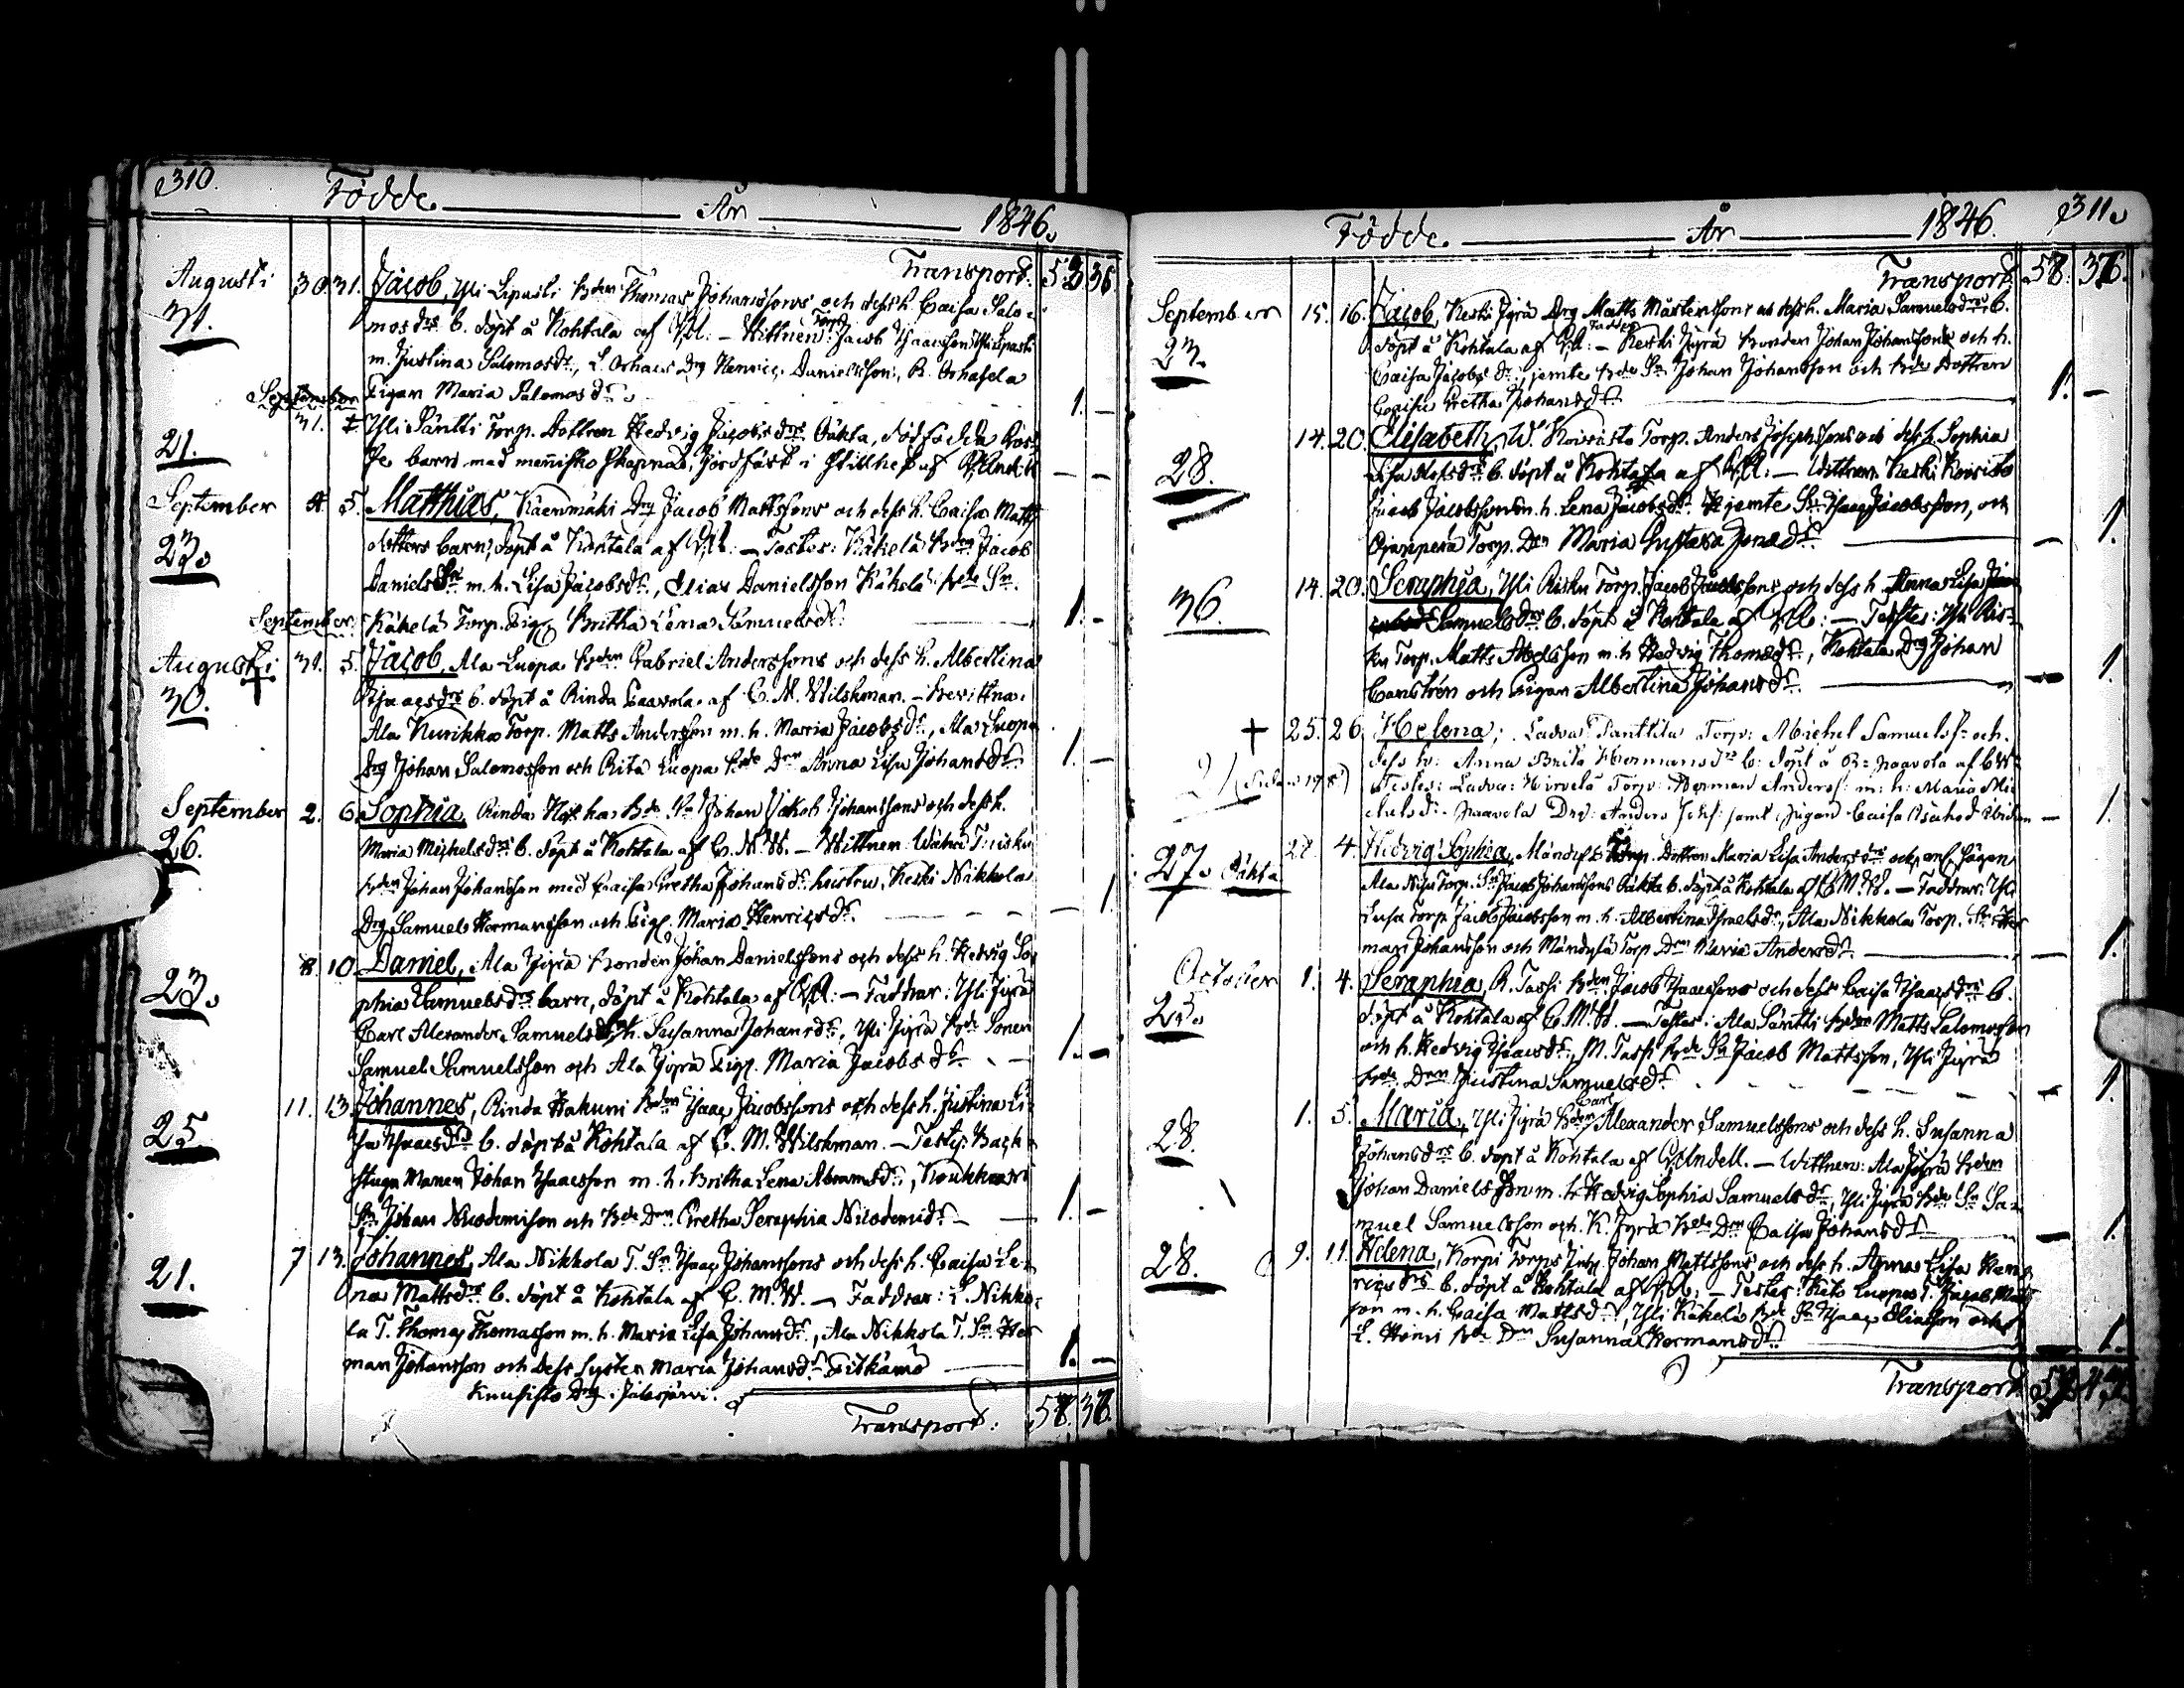 310.
Födde. År 1846.
Transport. 53 36
Augusti 30. 31. Jacob, Yli Lipasti Bden Thomas Johanssons och dess h. Caisa Salo-
31. mosdrs b. döpt å Kohtala af . - Wittnen: Torp. Jacob Isaacsson Yli Lipasti
m. Justina Salomosdr, L. Orhala Drg Henric Danielsson, R.
Pigan Maria Salomosdr. 1. -
September
31. Yli Säntti Torp. Dottren Hedvig Jacobsdrs Oäkta, dödfödda
21. barn med menisko skapnad, jordfäst i stillhet af - -
September 4. 5. Matthias, Käenmäki Drg Jacob Mattssons och dess h. Caisa Matts
23. dotters barn, döpt å Kohtala af . - Testes: Käkelä Bden Jacob
Daniels Sn m. h. Lisa Jacobsdr, Elias Danielsson Käkelä Bde Sn.
September Käkelä Torp. Pig. Britha Lena Samuelsdr. 1. -
Augusti 31. 5. Jacob, Ala Luopa Bden Gabriel Anderssons och dess h. Albertina
30. Isaacsdrs b. döpt å Rinda Paavola af C. M. Wilskman. - Bevittna:
Ala Kurikka Torp. Matts Andersson m. h. Maria Jacobsdr, Ala Luopa
Drg Johan Salomosson och Rita Luopa Bde Drn Anna Lisa Johansdr. 1. -
September 2. 6. Sophia, Rinda Bde Sn Johan Jakob Johanssons och dess h.
26. Maria Michelsdrs b. döpt å Kohtala af C. M. W. - Wittnen:
Bden Johan Johansson med Caisa Gretha Johansdr hustru, Keski Nikkola
Drg Samuel Hermansson och Pig. Maria Henricsdr. - 1
8. 10. Daniel, Ala Jyrä Bonden Johan Danielssons och dess h. Hedvig So-
23. phia Samuelsdrs barn, döpt å Kohtala af . - Faddrar: Yli Jyrä
Carl Alexander Samuels h. Susanna Johansdr, Yli Jyrä Bde Sonen
Samuel Samuelsson och Ala Jyrä Pig. Maria Jacobsdr. 1. -
11. 13. Johannes, Rinda Hakuni Bden Isaac Jacobssons och dess h. Justina Li-
25. sa Isaacsdrs b. döpt å Kohtala af C. M. Wilskman. - Testes: Back-
stugu Manen Johan Isaacsson m. h. Britha Lena Abramsdr, Koukkari
Sn Johan Nicodemison och Bde Drn Gretha Seraphia Nicodemidr. 1. -
7 13. Johannes, Ala Nikkola T. Sn Isaac Johanssons och dess h. Caisa Le-
21. na Mattsdrs b. döpt å Kohtala af C. M. W. - Faddrar: L. Nikko-
la T. Thomas Thomasson m. h. Maria Lisa Johansdr, Ala Nikkola T. Sn Her
man Johansson och dess Syster Maria Johansdr Pitkämö 1. -
Drg i Jalasjärvi.
Transport: 58. 36.
311.
Födde. År 1846.
Transport 58. 36.
September 15. 16. Jacob, Keski Jyrä Drg Matts Mårtenssons och dess h. Maria Samuelsdrs b.
23. döpt å Kohtala af . - Faddrar Keski Jyrä Bonden Johan Johansson och h.
Caisa Jacobsdr, jemte Bde Sn Johan Johansson och Bde Dottren
Caisa Gretha Johansdr. 1. -
14. 20. Elisabeth, W. Koivisto Torp. Anders Josephssons och dess h. Sophia
28. Lisa drs b. döpt å Kohtala af . - Wittnen Keski Koivisto
Jacob Jacobsson m. h. Lena Jacobsdr jemte Sn Isaac Jacobsson, och
Ojanperä Torp. Drn Maria Gustava Jonædr. - 1.
14. 20. Seraphia, Yli Risku Torp. Jacob Jacobssons och dess h. Anna Lisa
36. Samuelsdrs b. döpt å Kohtala af . - Testes: Yli Ris-
ku Torp. Matts Abelsson m. h. Hedvig Thomædr, Kohtala Drg Johan
Canstrén och Pigan Albertina Johansdr. - 1.
+ 25. 26 Helena; Ladva Panttila Torp: Michel Samuelss: och
dess h: Anna Brita Hermansdrs b: döpt å R: Paavola af CW:
21 Testes: Ladva Hirvelä Torp: Herman Anderss: m: h: Maria Mi-
chelsdr. Paavola Drg: Anders samt Pigan Caisa - 1.
27. Oäkta 27. 4. Hedvig Sophia, Torp. Dottren Maria Lisa Andersdrs och
Ala Torp. Sn Jacob Johanssons Oäkta b. döpt å Kohtala af C. M. W. - Faddrar: Yli
Torp. Jacob Jacobsson m. h. Albertina Israelsdr, Ala Nikkola Torp. Sn Her
man Johansson och Torp Drn Maria Andersdr. - 1.
October 1. 4. Seraphia, R. Tassi Bden Jacob Isaacssons och dess Caisa Isaacsdrs b.
25. döpt å Kohtala af C. M. W. - Testes: Ala Säntti Bden Matts Salomosson
och h. Hedvig Isaacsdr, M. Tassi Bde Sn Jacob Mattsson, Yli Jyrä
Bde Drn Justina Samuelsdr. - 1.
1. 5. Maria, Yli Jyrä Bden Carl Alexander Samuelssons och dess h. Susanna
28. Johansdrs b. döpt å Kohtala af . - Wittnen: Ala Jyrä Bden
Johan Daniels Son m. h. Hedvig Sophia Samuelsdr, Yli Jyrä Bde Sn Sa-
muel Samuelsson och K. Jyrä Bde Drn Caisa Johansdr. - 1.
9. 11. Helena, Korpi Torps Johan Mattssons och dess h. Anna Lisa Hen-
28. ricsdrs b. döpt å Kohtala af . - Testes: Luopa T. Jacob Matts
son m. h. Caisa Mattsdr, Yli Käkelä Bde Sn Isaac Eliasson och
L. Bde Drn Susanna Hermansdr. - 1.
Transport.